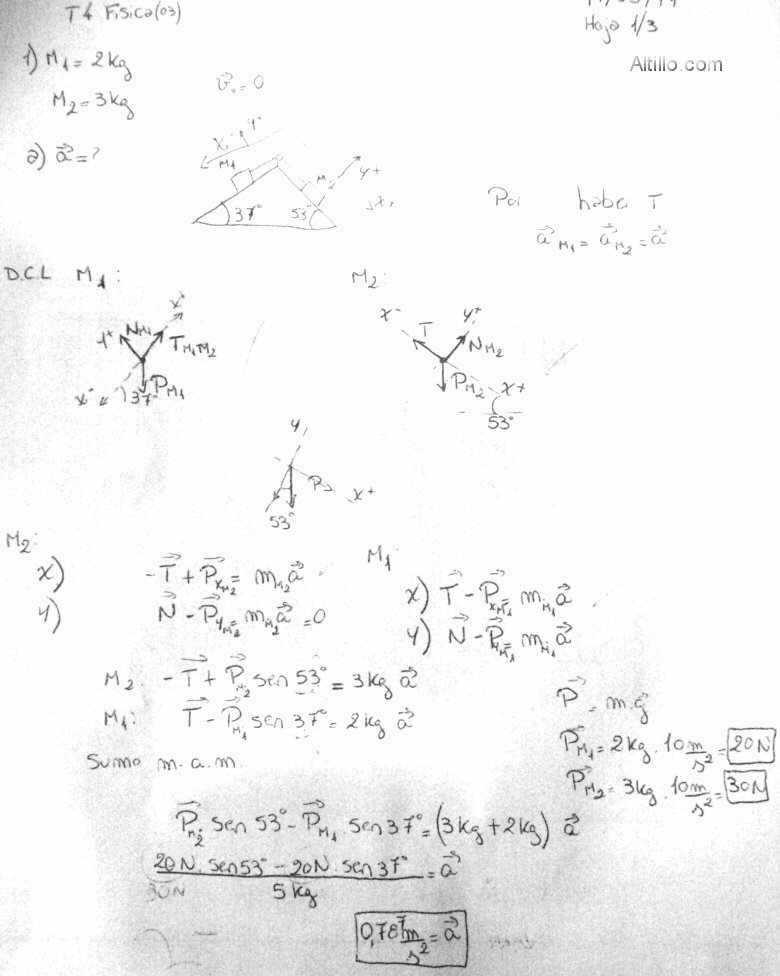 T4 Física (03)
Hoja 1/3
Altillo.com
1) M₁ = 2kg
M₂ = 3kg
v⃗₀ = 0
a) a⃗ = ?
M₁
M₂
x⁻
y⁺
y+
x+
37°
53°
Por haber T
a⃗ M₁ = a⃗ M₂ = a⃗
D.C.L M₁:
M₂:
N M₁
T M₁M₂
P M₁
37°
x⁻
T
y⁺
N M₂
P M₂
x+
53°
y
P
x+
53°
M₂:
x) -T⃗ + P⃗xM₂ = mM₂ a⃗
y) N⃗ - P⃗yM₂ = mM₂ a⃗ = 0
M₁
x) T⃗ - P⃗xM₁ = mM₁ a⃗
y) N⃗ - P⃗yM₁ = mM₁ a⃗
M₂: -T⃗ + P⃗M₂ sen 53° = 3kg a⃗
M₁: T⃗ - P⃗M₁ sen 37° = 2kg a⃗
Sumo m.a.m.
P⃗ = m.g⃗
P⃗M₁ = 2kg . 10 m/s² = 20N
P⃗M₂ = 3kg . 10 m/s² = 30N
P⃗M₂ sen 53° - P⃗M₁ sen 37° = (3kg + 2kg) a⃗
20N . sen 53° - 20N . sen 37° = a⃗
30N 5kg
0,787 m/s² = a⃗